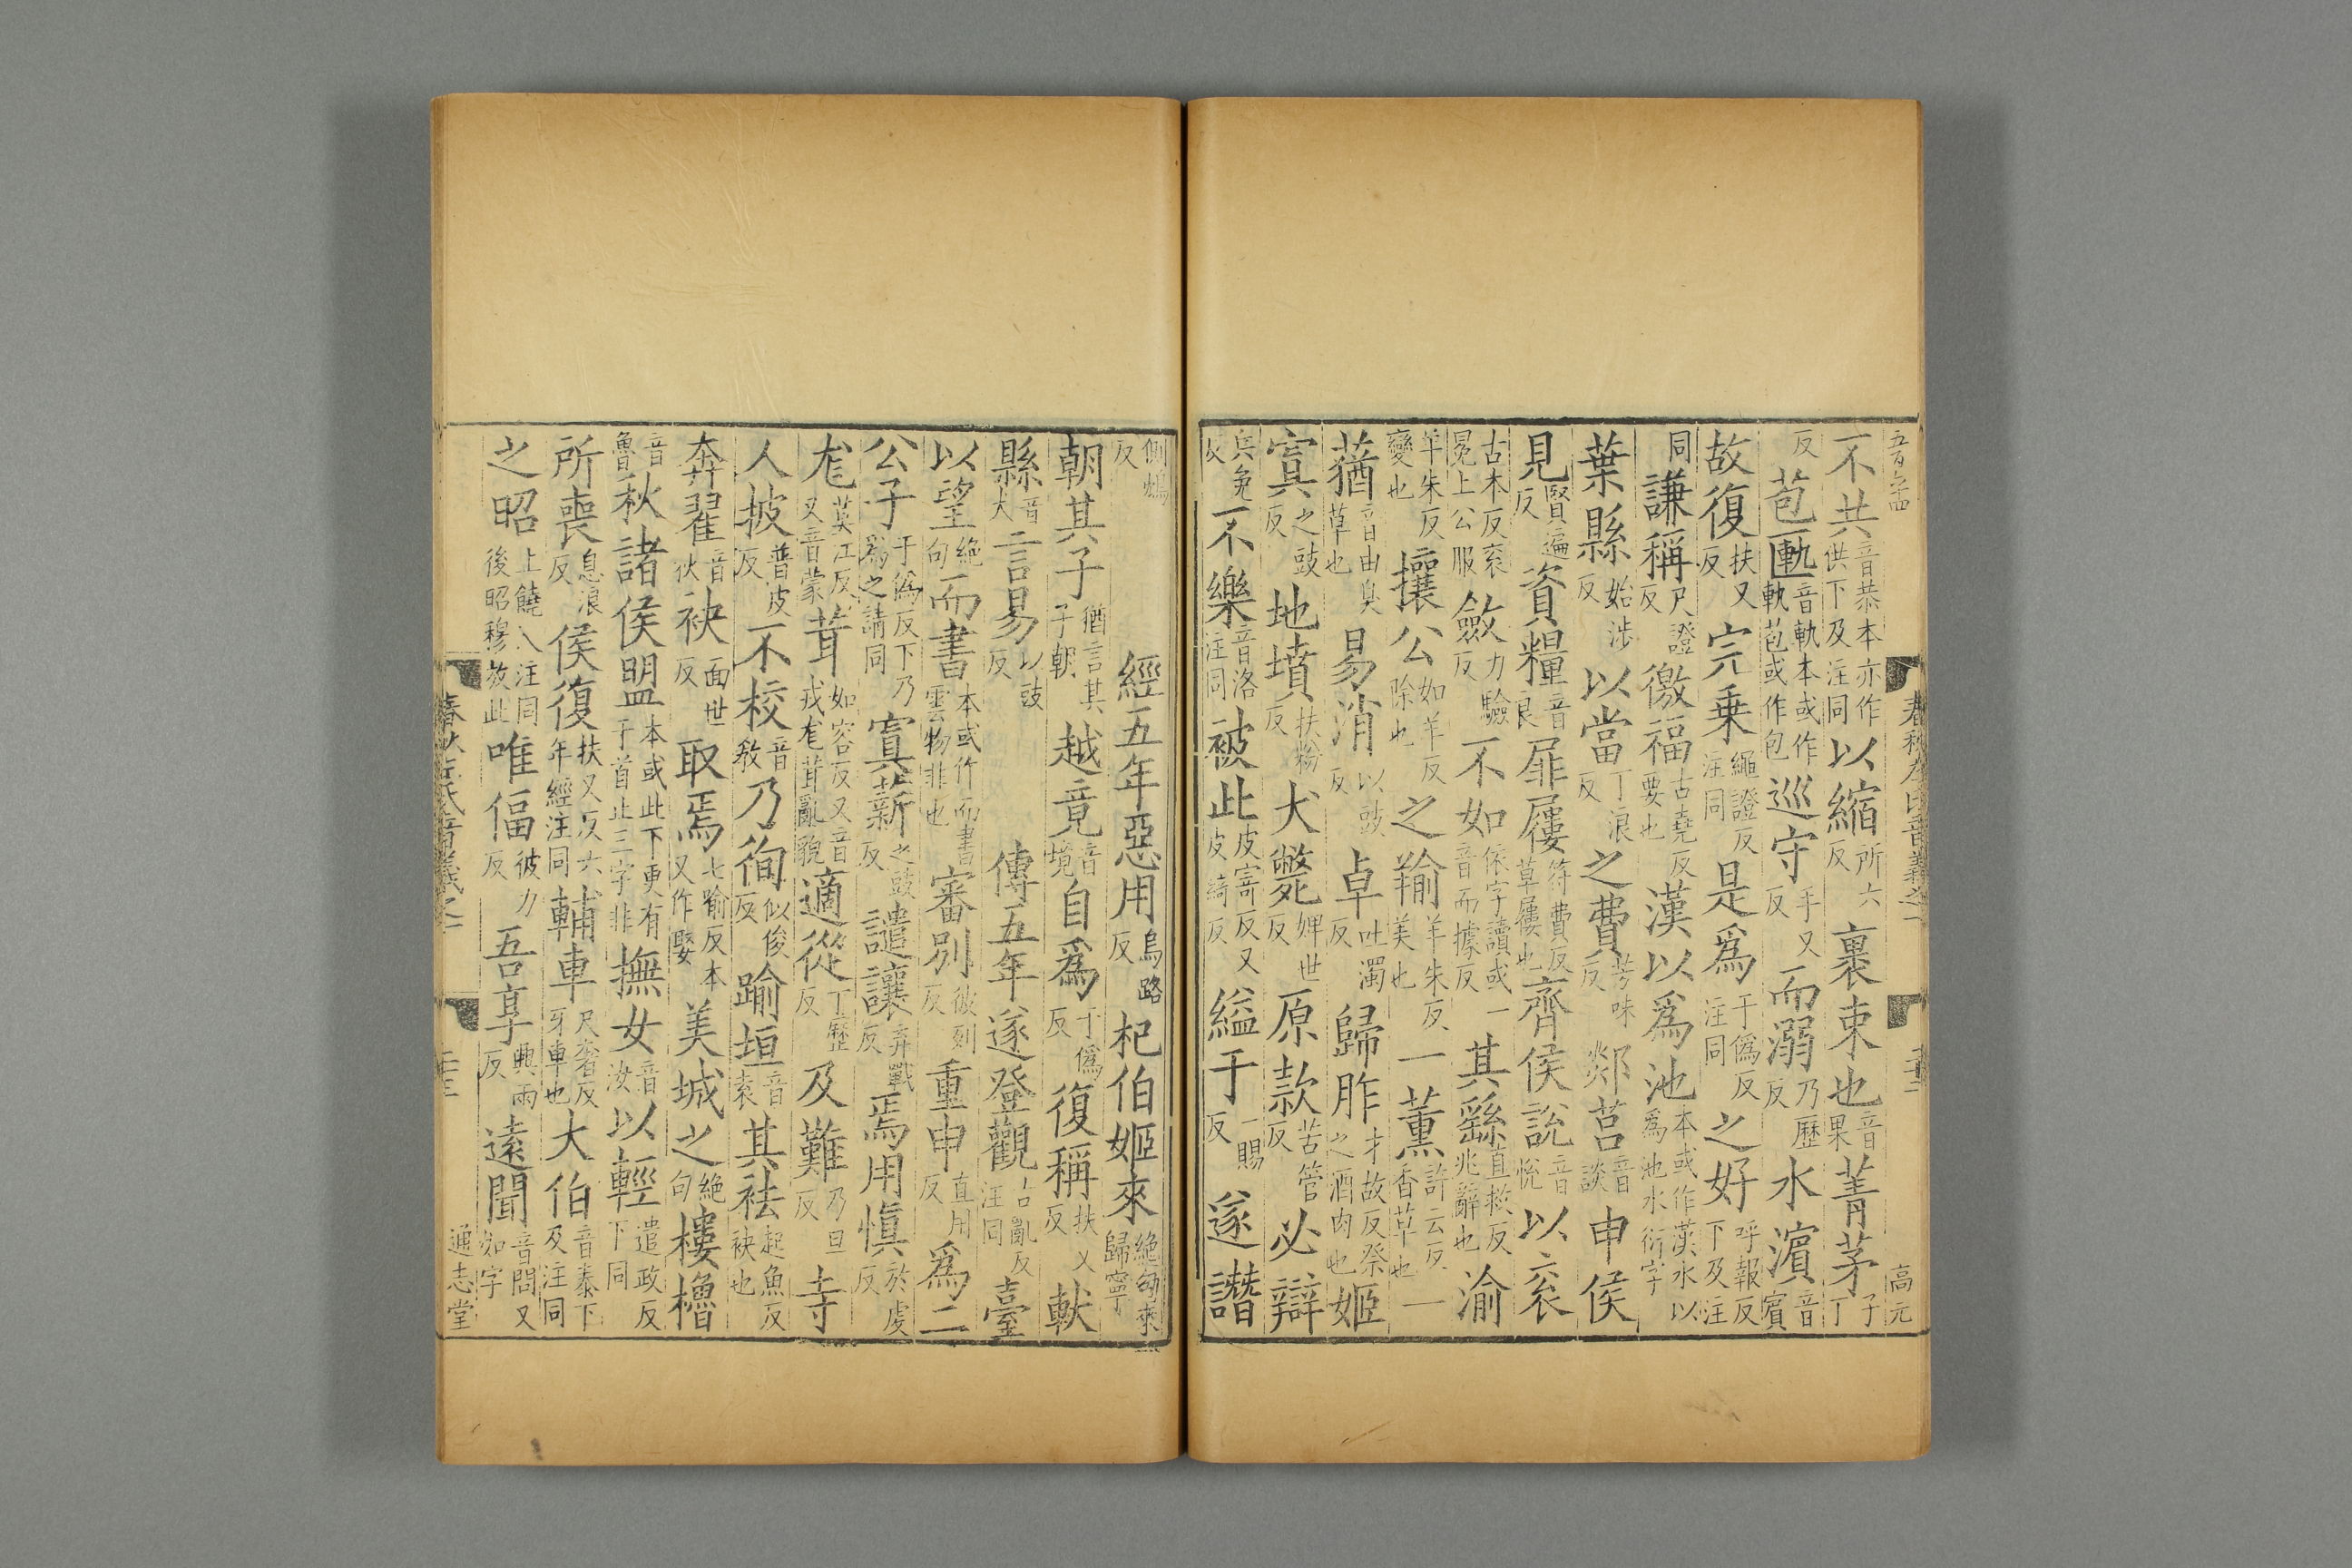 不共音恭本亦作供下及注同以縮所六反裹束也音果菁茅子丁
反苞匭音軌本或作軌苞或作包巡守手又反而溺乃歷反水濱音賓
故復扶又反完乗繩證反注同是爲于僞反注同之好呼報反下及注
同謙稱尺證反徼福古堯反要也漢以爲池本或作漢水以爲池水衍字
葉縣始涉反以當丁浪反之費芳味反郯莒音談申侯
見賢遍反資糧音良屝屨符費反草屨也齊侯說音悅以衮
古本反衮冕上公服斂力驗反不如依字讀或一音而據反其繇直救反兆辭也渝
羊朱反變也攘公如羊反除也之羭羊朱反美也一薰許云反香草也一
蕕音由臭草也易消以豉反卓吐濁反歸胙才故反祭之酒肉也姬
寘之豉反地墳扶粉反犬斃婢世反原款苦管反必辯
兵免反不樂音洛注同被此皮寄反又皮綺反縊于一賜反遂譖
春秋左氏音義之一
高元
側鴆反
經五年惡用烏路反杞伯姬來絕句來歸寧
朝其子猶言其子朝越竟音境自爲于僞反復稱扶又反獻
縣音犬言易以豉反傳五年遂登觀古亂反注同臺
以望絕句而書本或作而書雲物非也審別彼列反重申直用反爲二
公子于僞反下乃爲之請同寘薪之豉反譴讓弃戰反焉用愼於虔反
尨莫江反又音蒙茸如容反又音戎尨茸亂貌適從丁歷反及難乃旦反寺
人披普皮反不校音敎乃徇似俊反踰垣音袁其袪起魚反袂也
奔翟音狄袂面世反取焉七喻反本又作娶美城之絕句樓櫓
音魯秋諸侯盟本或此下更有于首止三字非撫女音汝以輕遣政反下同
所喪息浪反侯復扶又反六年經注同輔車尺奢反牙車也大伯音泰下及注同
之昭上饒反注同後昭穆放此唯偪彼力反吾享興兩反遠聞音問又如字
春秋左氏音義之一
通志堂